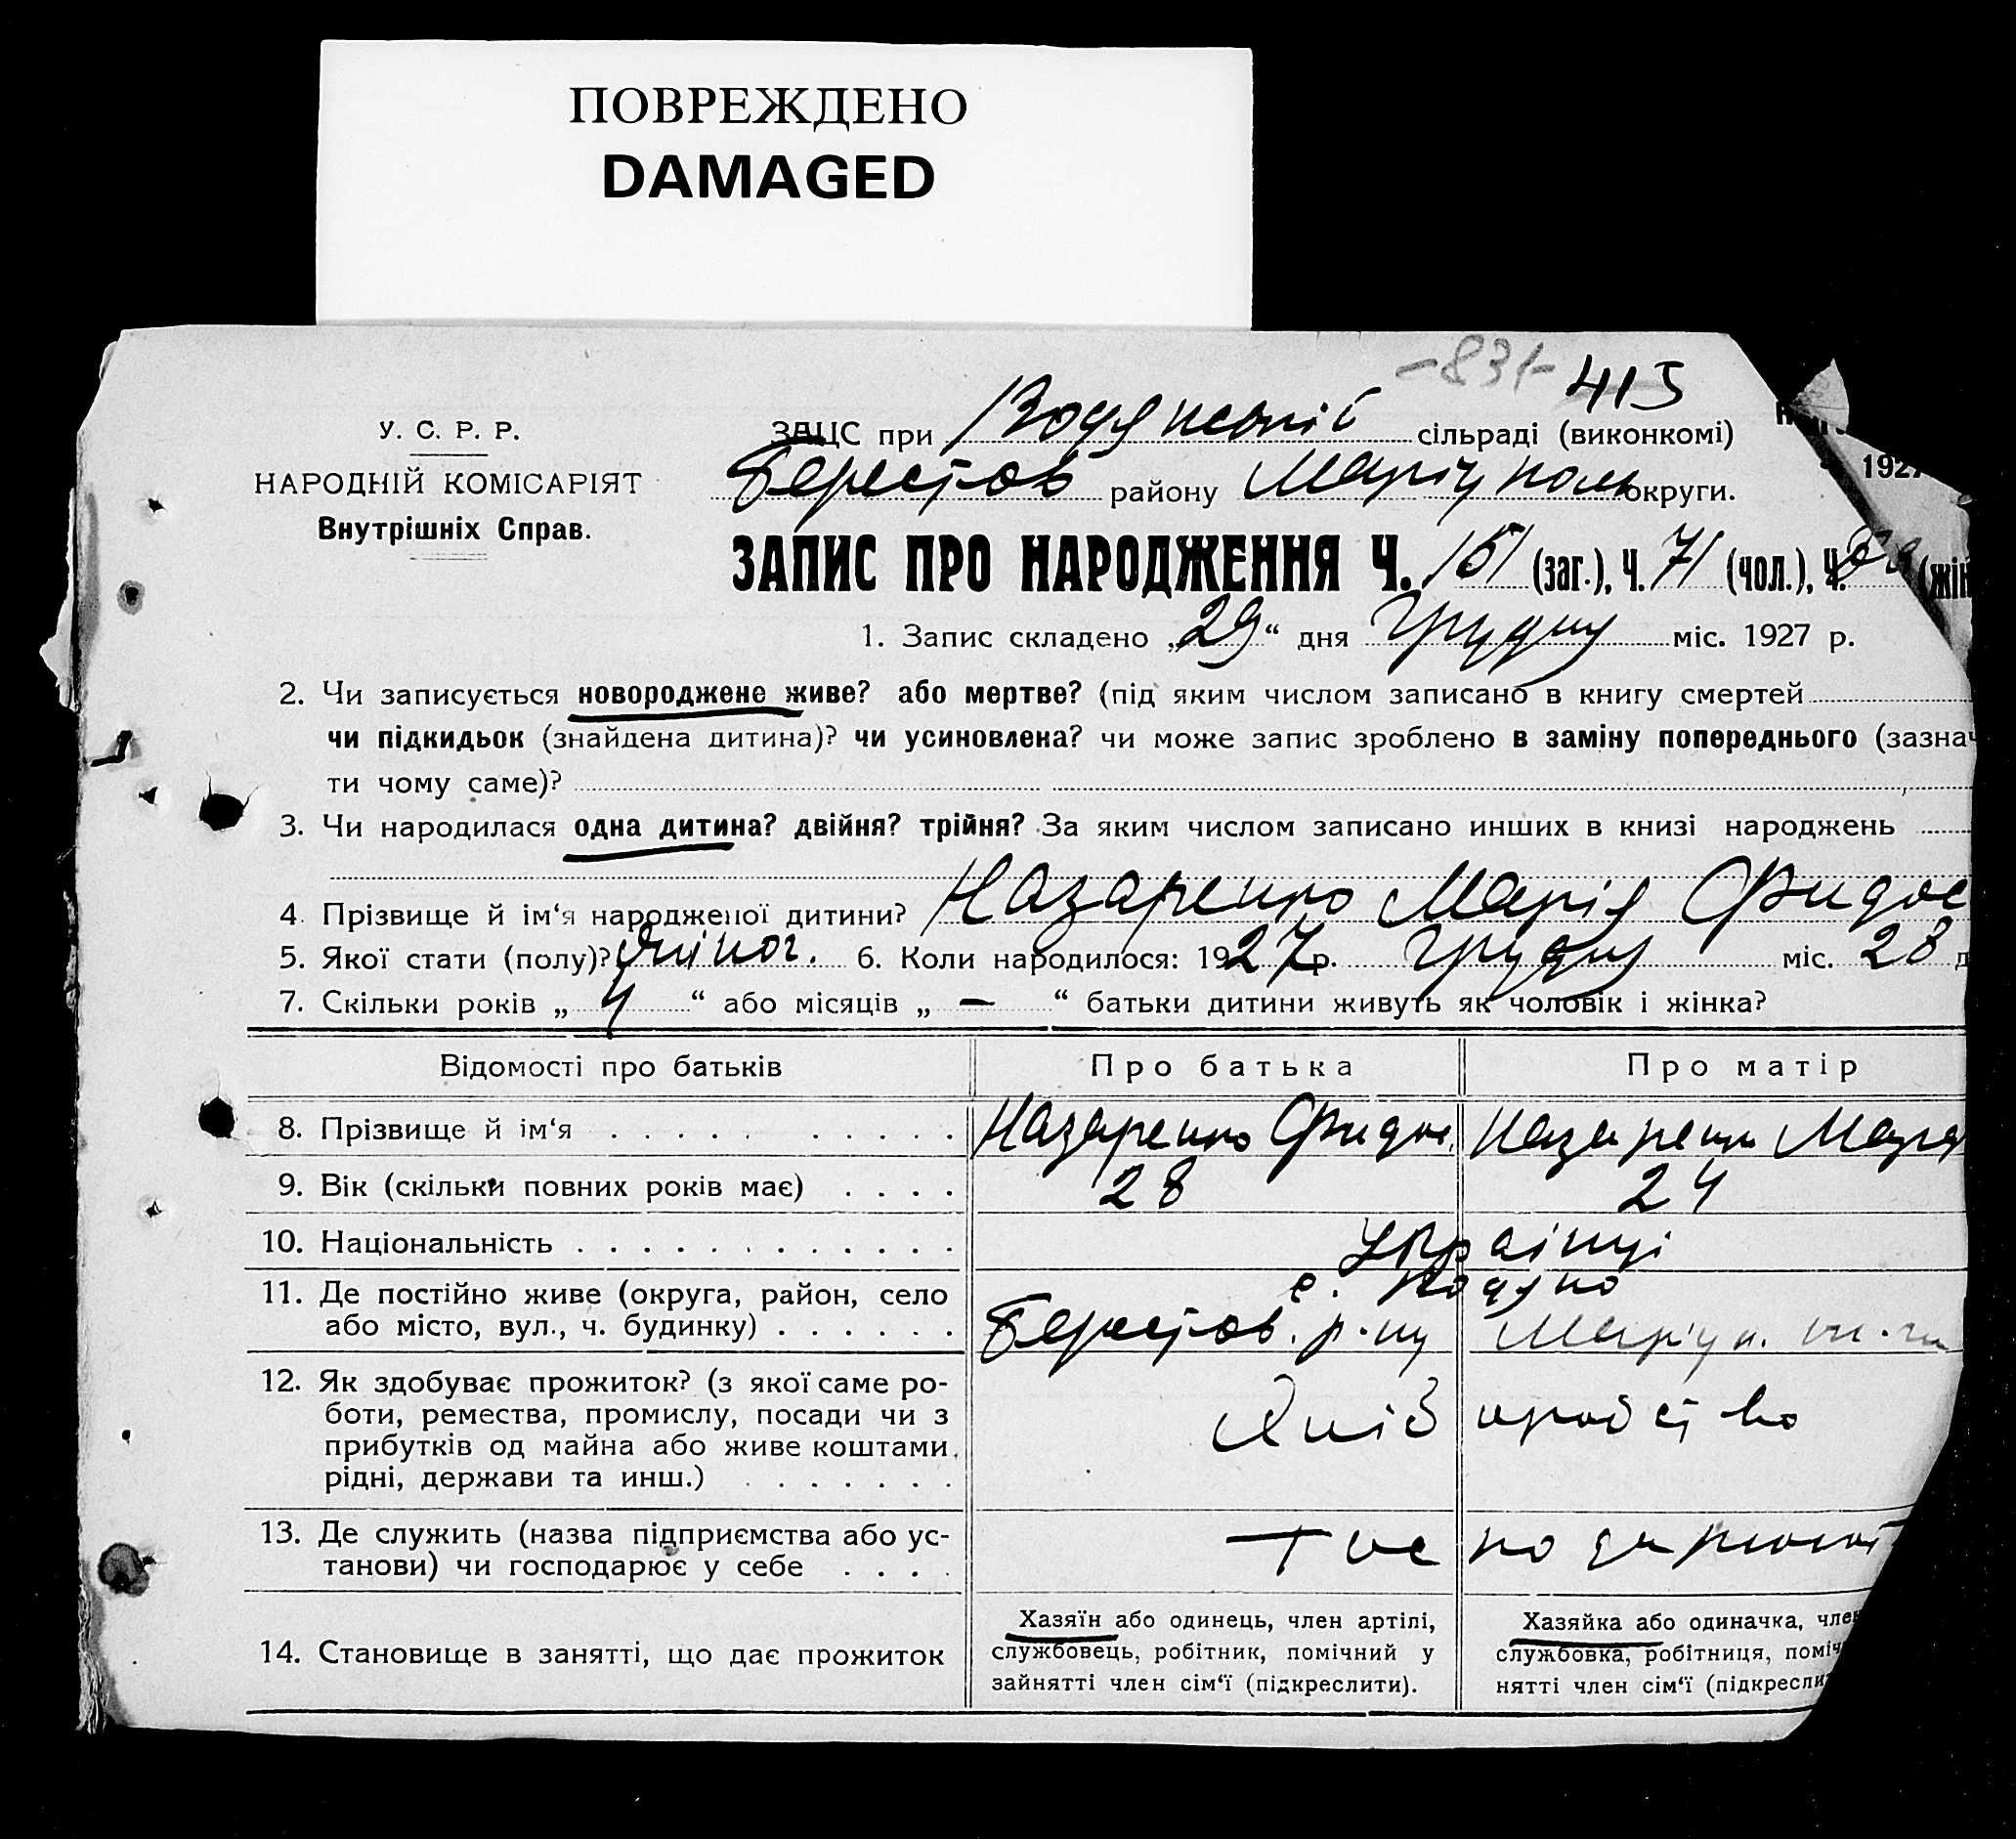 ПОВРЕЖДЕНО
DAMAGED
-831- 415
У. С. Р. Р.
НАРОДНІЙ КОМІСАРІЯТ
Внутрішніх Справ.
ЗАЦС при сільраді (виконкомі)
Берестов району Маріуполь округи.
1927
ЗАПИС ПРО НАРОДЖЕННЯ Ч. 151 (заг.), Ч. 71 (чол.), Ч. (жін
1. Запис складено „29“ дня Грудня міс. 1927 р.
2. Чи записується новороджене живе? або мертве? (під яким числом записано в книгу смертей
чи підкидьок (знайдена дитина)? чи усиновлена? чи може запис зроблено в заміну попереднього (зазнач
ти чому саме)?
3. Чи народилася одна дитина? двійня? трійня? За яким числом записано инших в книзі народжень
4. Прізвище й ім‘я народженої дитини? Назаренко Марія Фидос
5. Якої стати (полу)? жіноч. 6. Коли народилося: 1927 р. Грудня міс. 28 д
7. Скільки років „ 4 “ або місяців „ — “ батьки дитини живуть як чоловік і жінка?
Відомості про батьків Про батька Про матір
8. Прізвище й ім‘я Назаренко Фидос. Назаренко Мара
9. Вік (скільки повних років має) 28 24
10. Національність Українці
11. Де постійно живе (округа, район, село
або місто, вул., ч. будинку)
с. Водяно
Берестов. р-ну Маріуп.
12. Як здобуває прожиток? (з якої саме ро-
боти, ремества, промислу, посади чи з
прибутків од майна або живе коштами
рідні, держави та инш.)
Хліборобство
13. Де служить (назва підприємства або ус-
танови) чи господарює у себе
14. Становище в занятті, що дає прожиток
Хазяїн або одинець, член артілі,
службовець, робітник, помічний у
зайнятті член сім‘ї (підкреслити).
Хазяйка або одиначка, член
службовка, робітниця, поміч
нятті член сім‘ї (підкресли